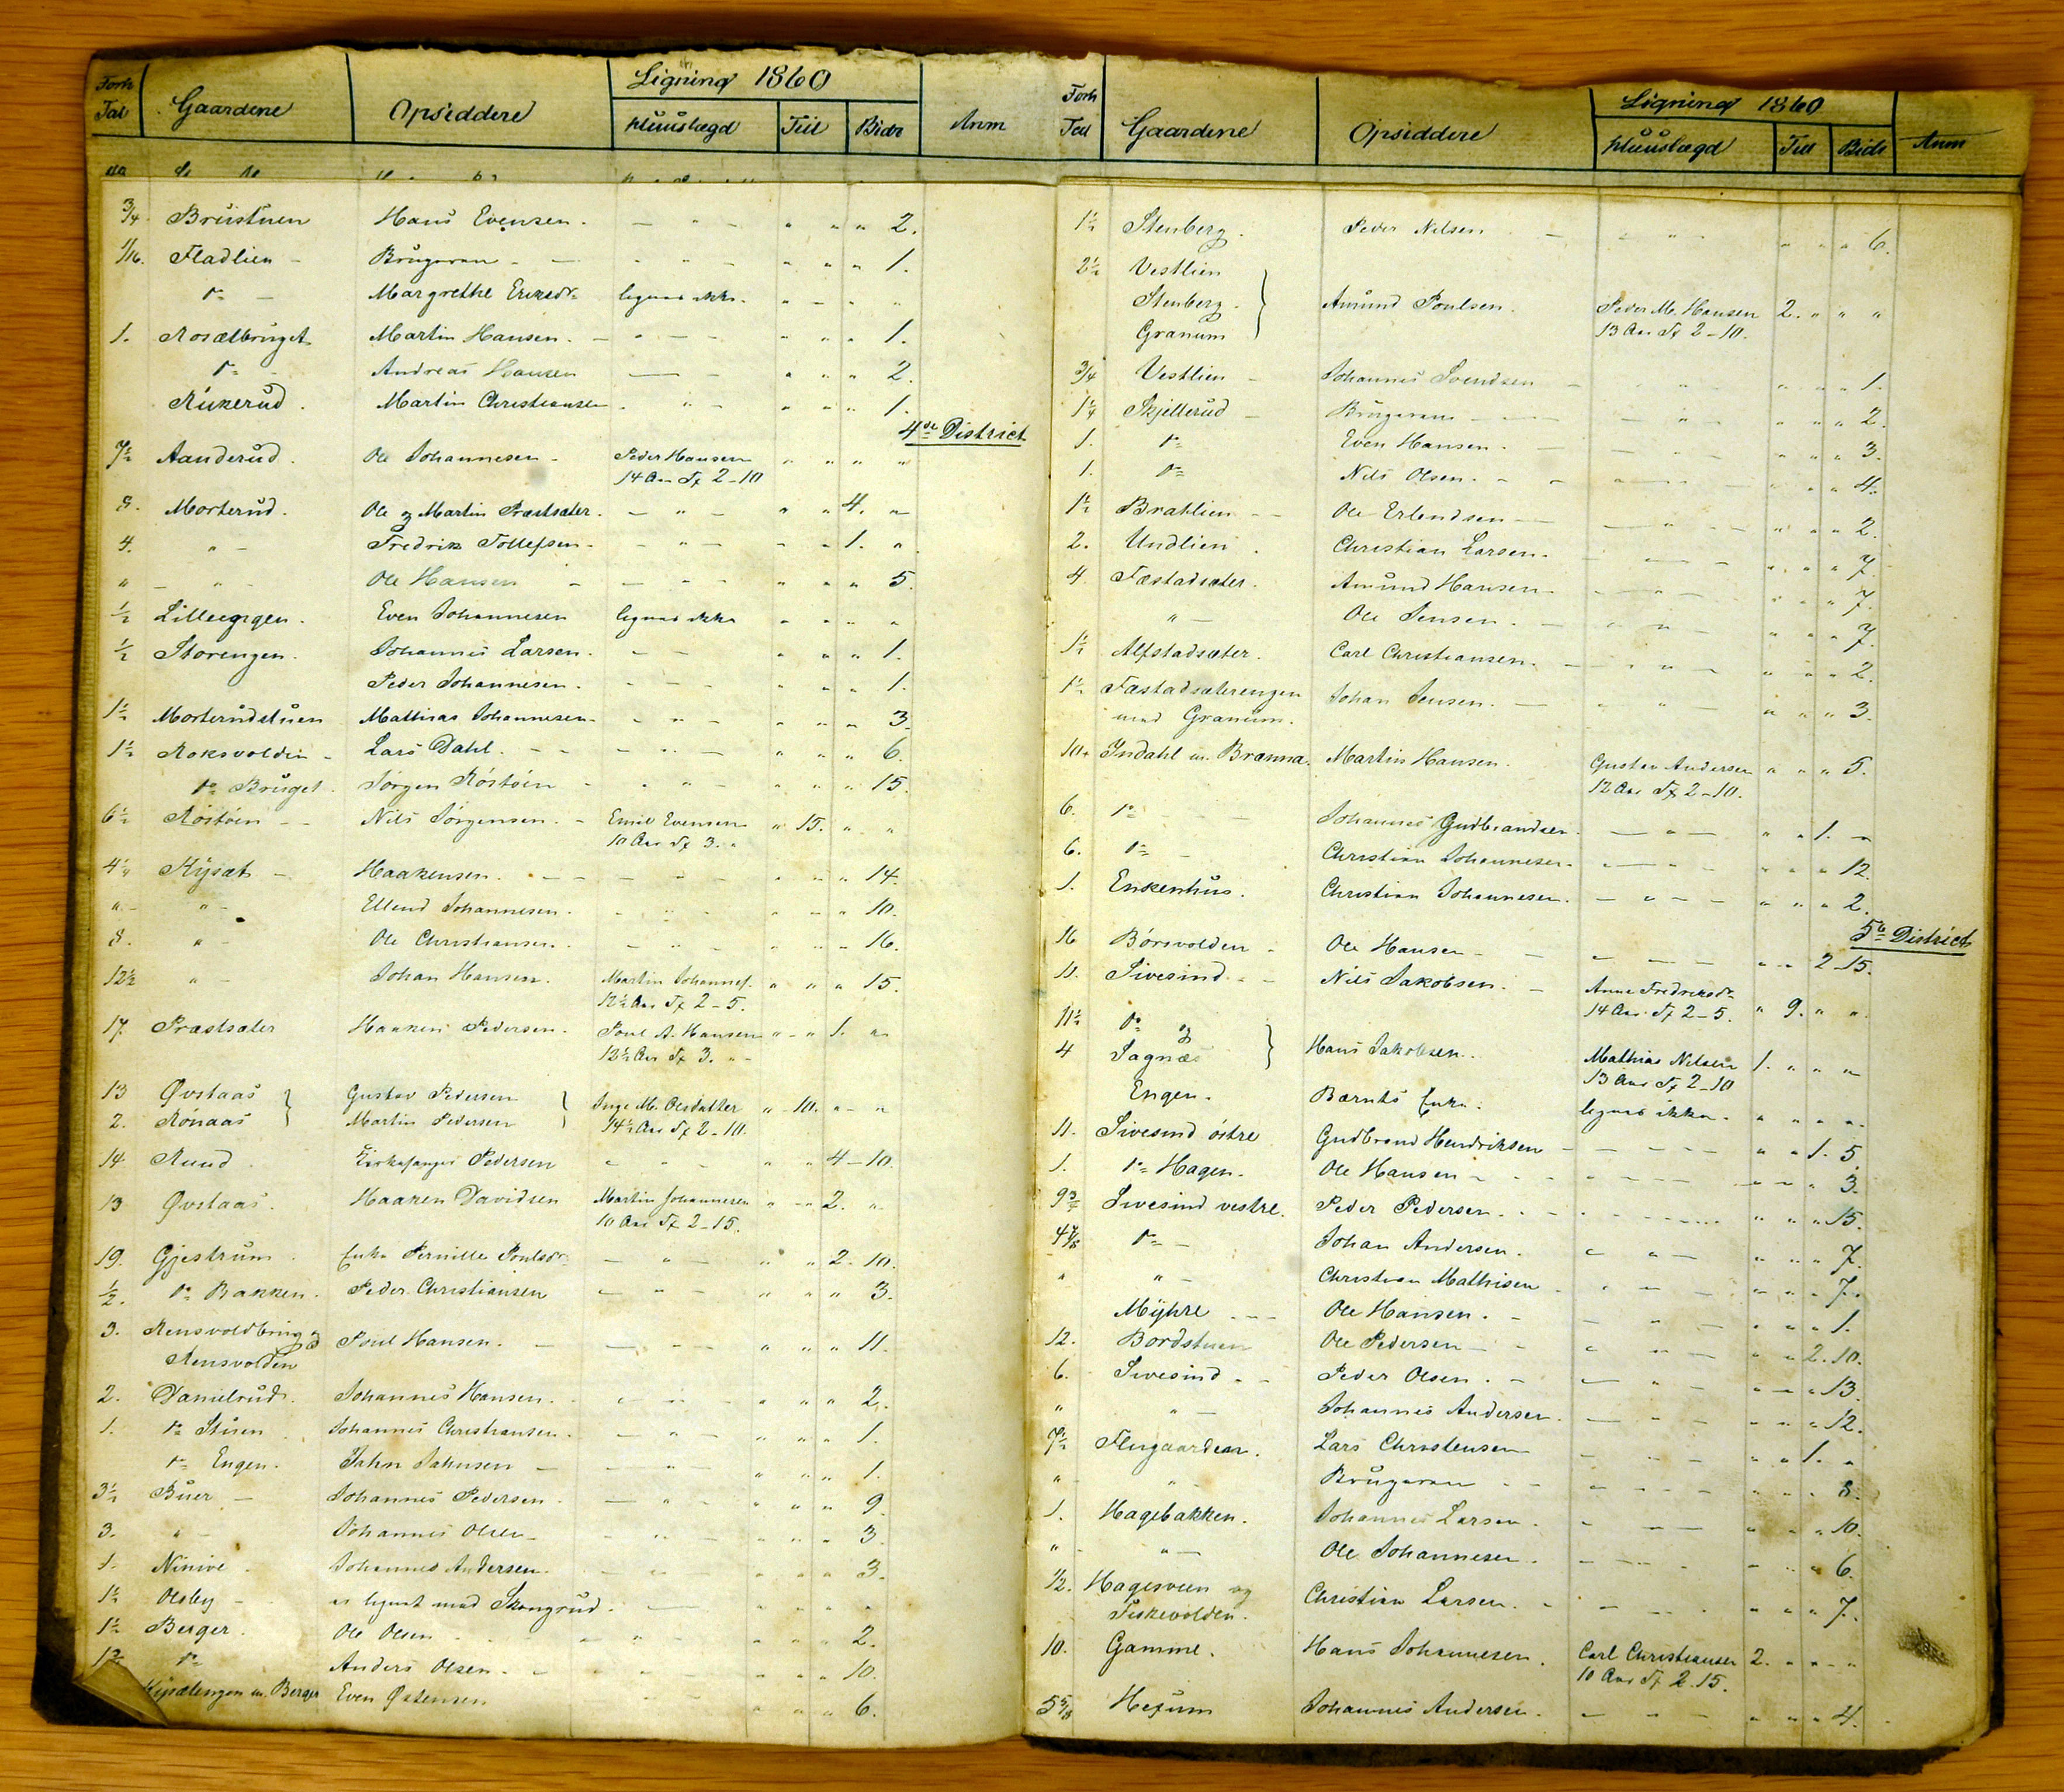 Ligning 1860
Forh Tal Gaardene Opsiddere Huuslægd Till Bidr Anm
3/4 Brustuen Hans Evensen. — " — " " " 2.
1/16. Fladlien — Brugeren — — " — " " " 1.
do — Margrethe Ericsdr lignes ikke. " — " "
1. Rosætbruget Martin Hansen. — " — — " " " 1.
do — Andreas Hansen — — " " " 2.
Rukerud. Martin Christiansen. " — " " " 1.
4de District
7 1/2 Aanderud. Ole Johannesen — Peder Hansen " " " "
14 Aar Sp 2-10
8. Morterud. Ole og Martin Præstsæter. — " — " " 4. "
4. " — Fredrik Tollefsen — — " — " " 1. "
" — " — Ole Hansen — — " — " " " 5.
1/2 Lilleengen. Even Johannesen lignes ikke " " " "
1/2 Storengen. Johannes Larsen. — — " " " 1.
Peder Johannesen. — — — " " " 1.
1 1/2 Morterudstuen Mathias Johannesen — — " — " " " 3.
1 1/2 Roksvolden — Lars Dahl. — — — " — " " " 6.
do Bruget. Jørgen Röstöen — " " — " " " 15.
6 1/2 Röstöen — — Nils Jörgensen. — Emil Evensen " 15. " "
10 Aar Sp 3. "
4 1/4 Kysæt — Haakensen. — — — — — " " " 14.
" — " — Ellend Johannesen. — " — " — " 10.
8. " — Ole Christiansen. — " — " " — 16.
12 1/2 " — Johan Hansen. Martin Johannes. " " " 15.
12 1/2 Aar Sp 2-5.
17. Præstsæter Haaken Pedersen. Poul A. Hansen " — " 1. "
12 1/2 Aar Sp 3. " —
13 Øvstaas } Gustav Pedersen } Inge M. Olsdatter " 10. " — "
2. Rönaas Martin Pedersen 14 1/2 Aar Sp 2-10.
14 Ruud. Kirkesanger Pedersen — " — " " 4-10.
13 Øvstaas. Haaken Davidsen Martin Johannesen " — " 2. "
10 Aar Sp 2-15.
19. Gjestrum. Enke Pernille Poulsdr — " — " " 2-10.
1/2. do Bakken. Peder Christiansen — " — " " " 3.
3. Rensvoldbrug og Poul Hansen. — — " — — " " " 11.
Rensvolden
2. Danielrud. Johannes Hansen. — — — " " " 2.
1. do Stuen Johannes Christiansen. — " — " " " 1.
do Engen. Jahn Jahnsen — — " — " " " 1.
3 1/2 Buer — Johannes Pedersen — — " — " " " 9.
3. " — Johannes Olsen — " — " " " 3.
1. Ninive. Johannes Andersen. — " — " " " 3.
1 1/2 Olsby — er lignet med Skongrud. — " " " "
1 1/2 Berger. Ole Olsen — — " " — " " " 2.
do Anders Olsen. — — " — " " " 10.
Kysætengen m. Berger Even Østensen " " " 6.
Ligning 1860
Forh Tal Gaardene Opsiddere Huuslægd Till Bidr Anm
1 1/2 Stenberg. Peder Nilsen — — " — " " " 6.
2 1/2 Vestlien
Stenberg. } Amund Poulsen. Peder M. Hansen 2. " " "
Granum 13 Aar Sp 2-10.
3/4 Vestlien — Johannes Svendsen — — " — " " " 1.
1 1/4 Skjellerud — Brugeren — — — " — " " " 2.
1. do Even Hansen. — — " — " " " 3.
1. do Nils Olsen. — — " — — " " " 4.
1 1/2 Bratlien — Ole Erlendsen — — " — — " " " 2.
2. Undlien. Christian Larsen. — — — — " " " 7.
4. Fæstadsæter. Amund Hansen. — " — " " " 7.
" — Ole Jensen. — " " — " " " 7.
1 1/2 Alfstadsæter. Carl Christiansen. — " " — " " " 2.
1 1/2 Fæstadsæterengen Johan Jensen. — " " — " " " 3.
med Granum.
10. Indahl m. Brænna. Martin Hansen. Gustav Andersen " " " 5.
12 Aar Sp 2-10.
6. do — Johannes Gudbrandsen. — " — " " 1. "
6. do — Christian Johannesen. — — " — " " " 12.
1. Enkenhus. Christian Johannesen. — " — — " " " 2.
5te District
16 Börsvolden — Ole Hansen — — — — " " 2-15.
11. Sivesind. — Nils Jakobsen. — Anne Fredriksdr " 9. " "
14 Aar Sp 2-5.
11 1/2 do og } Hans Jakobsen. Mathias Nilsen 1. " " "
4 Sagnæs 13 Aar Sp 2-10
Engen. Bærnts Enke. lignes ikke. " " " "
11. Sivesind östre Gudbrand Hendriksen — — — — " " 1. 5.
1. do Hagen. Ole Hansen — — — — — " 3.
9 3/4 Sivesind vestre. Peder Pedersen. — — — — " " " 15.
4 7/8 do — Johan Andersen. — " — " " " 7.
" " — Christian Mathisen " — — " " " 7.
Myhre — — Ole Hansen. — — " — " " " 1.
12. Bordstuen Ole Pedersen — — — " — " " 2. 10.
6. Sivesind — — Peder Olsen. — — " — " — " 13.
" " — Johannes Andersen. — " — " " " 12.
7 1/2 Flugaarden. Lars Christensen — " — " " 1. "
" " — Brugeren — — " — — " " " 8.
1. Hagebakken. Johannes Larsen. — — — " " " 10.
" " — Ole Johannesen. — — — " " " 6.
1/2. Hagesveen og Christian Larsen. — — — — " " " 7.
Fiskevolden.
10. Gamme. Hans Johannesen. Carl Christiansen 2. " " "
10 Aar Sp 2.15.
5 5/8 Hexum Johannes Andersen. — — — " " " 4.